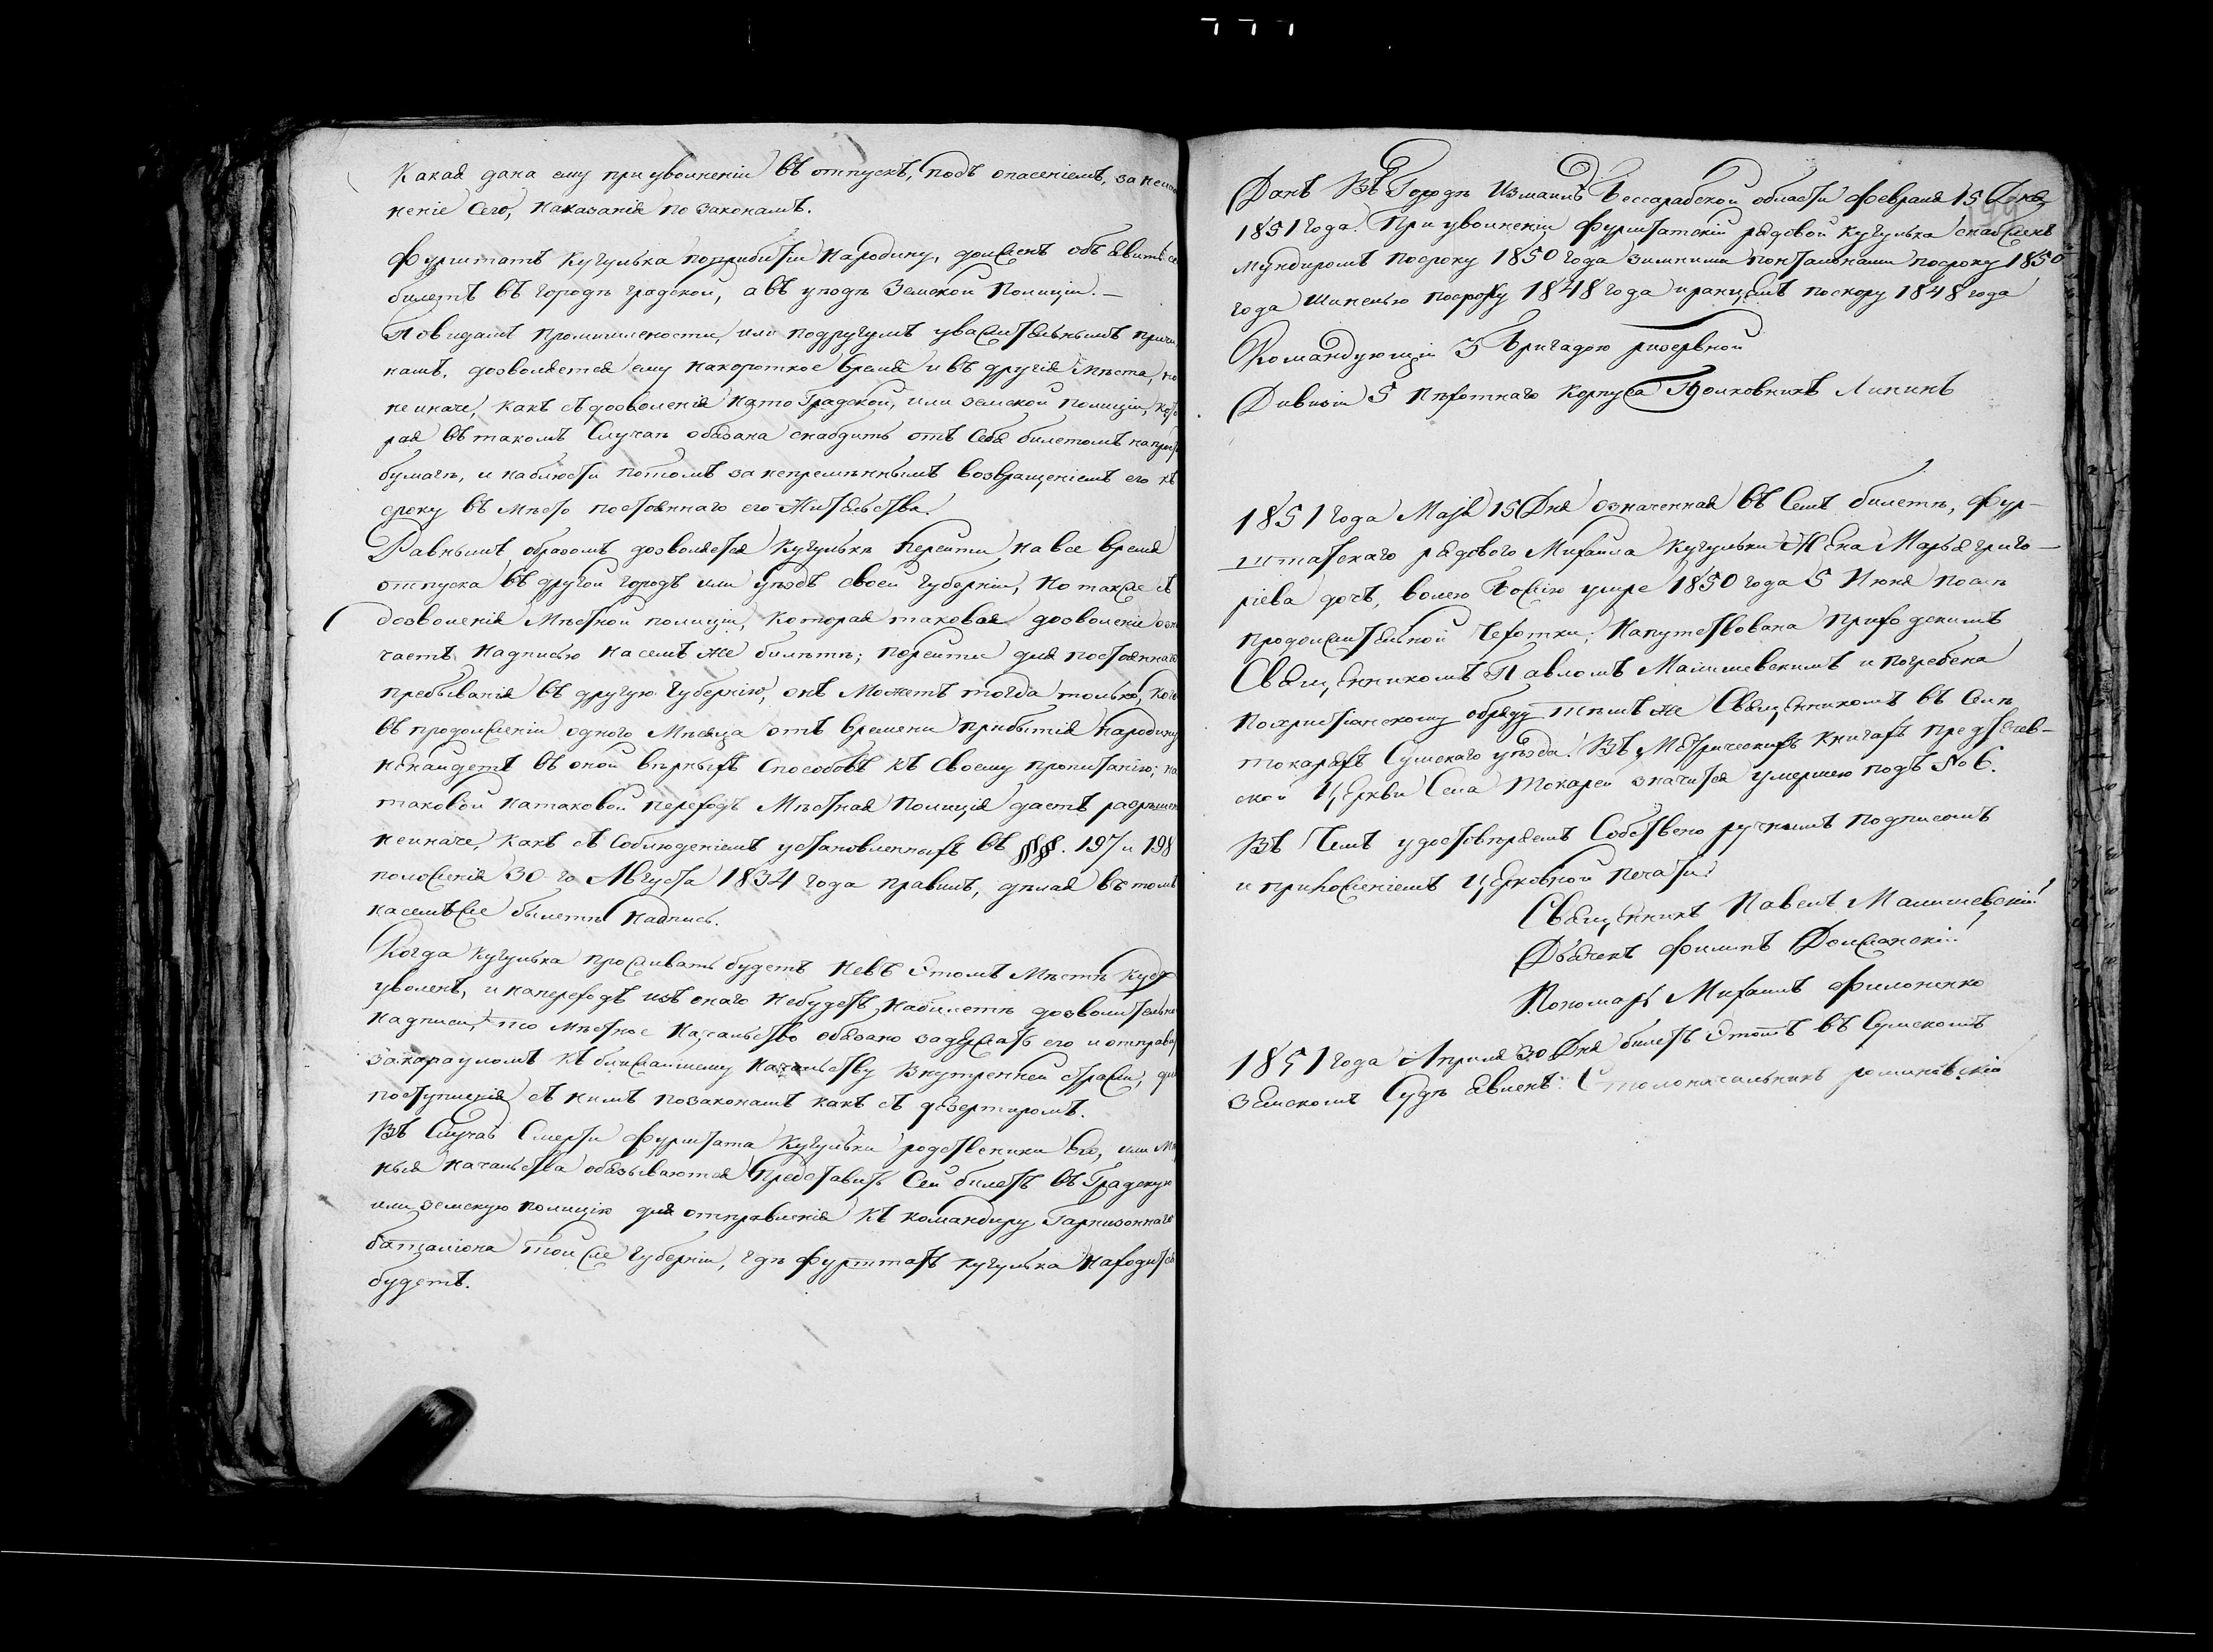 Какая дана ему при увольненіи въ отпускъ, подъ опасеніемъ, за неиспол
неніе сего, наказанія по законамъ.
Фурштатъ Кугулька поприбытіи народину, долженъ объявить се
билетъ въ городѣ градской, а въ уѣздѣ Земской Полиціи. —
По видамъ промышлености, или подругимъ уважительнымъ причи
намъ, дозволяется ему на короткое время и въ другія мѣста, но
не иначе, какъ съ дозволенія на то Градской, или земской полиціи, кото
рая въ такомъ случаѣ обязана снабдить отъ себя билетомъ на прост
бумагѣ, и наблюсти потомъ за непремѣннымъ возвращеніемъ его къ
сроку въ мѣсто постояннаго его жительства.
Равнымъ образомъ дозволяется Кугулькѣ перейти на все время
отпуска въ другой городъ или уѣздъ своей губерніи, но также съ
дозволенія мѣстной полиціи, которая таковая дозволеніе озн
чаетъ надписью на семъ же билѣтѣ; перейти для постояннаго
пребыванія въ другую губернію, онъ можетъ тогда только, когд
въ продолженіи одного мѣсяца отъ времени прибытія народину
ненайдетъ въ оной вѣрныхъ способовъ къ своему пропитанію; на
таковой натаковой переходъ мѣстная полиція даетъ разрѣшен
не иначе, какъ съ соблюденіемъ установленныхъ въ §§. 197 и 198
положенія 30 го Августа 1834 года правилъ, дѣлая въ томъ
на семъ же былетѣ надпись.
Когда Кугулька проживать будетъ невъ этомъ мѣстѣ куда
уволенъ, и на переходъ изъ онаго небудетъ на билетѣ дозволительно
надписи, то мѣстное начальство обязано задержать его и отправи
за карауломъ къ ближайшему начальству Внутренней стражи, для
поступленія съ нимъ по законамъ какъ съ дезертиромъ.
Въ случаѣ смерти фурштата Кугульки родственики его, или мѣ
ныя начальства обязываются представить сей билетъ въ Градскую
или земскую полицію для отправленія къ командиру Гарнизоннаго
баталіона той же губерніи, гдѣ фурштатъ Кугулька находится
будетъ.
Данъ Въ Городѣ Измаилѣ Бессарабской области февраля 15 Дня
1851 года. При увольненіи фурштатскій рядовой Кугулька снабженъ
мундиромъ посроку 1850 года зимними понталонами посроку 1850
года шинелью посроку 1848 года и ранцемъ поскору 1848 года
Командующій 3 Бригадою резервной
Дивизіи 5 пѣхотнаго корпуса Полковникъ Линин
1851 года Маія 15 Дня означенная въ семъ билетѣ, фур-
штатскаго рядового Михаила Кугульки Жена Марья григо-
ріева дочь, волею Божію умре 1850 года 5 Июня послѣ
продолжительной чехотки; напутствована приходскимъ
Священникомъ Павломъ Малишевскимъ и погребена
по христіанскому обряду тѣмъ же Священникомъ въ селѣ
токаряхъ Сумскаго уѣзда. Въ Метрическихъ книгахъ предтечев-
ской Церкви Села Токарей значится умершею подъ № 6.
Въ Чемъ удостовѣряемъ Собственоручнымъ подписомъ
и приложеніемъ церковной печати:
Священникъ Павелъ Малишевскій
Дьячекъ Филипъ Должанскій
Пономарь Михаилъ Филоненко
1851 года Апреля 30 Дня билетъ этотъ въ Сумскомъ
земскомъ Судѣ явленъ: Столоначальникъ